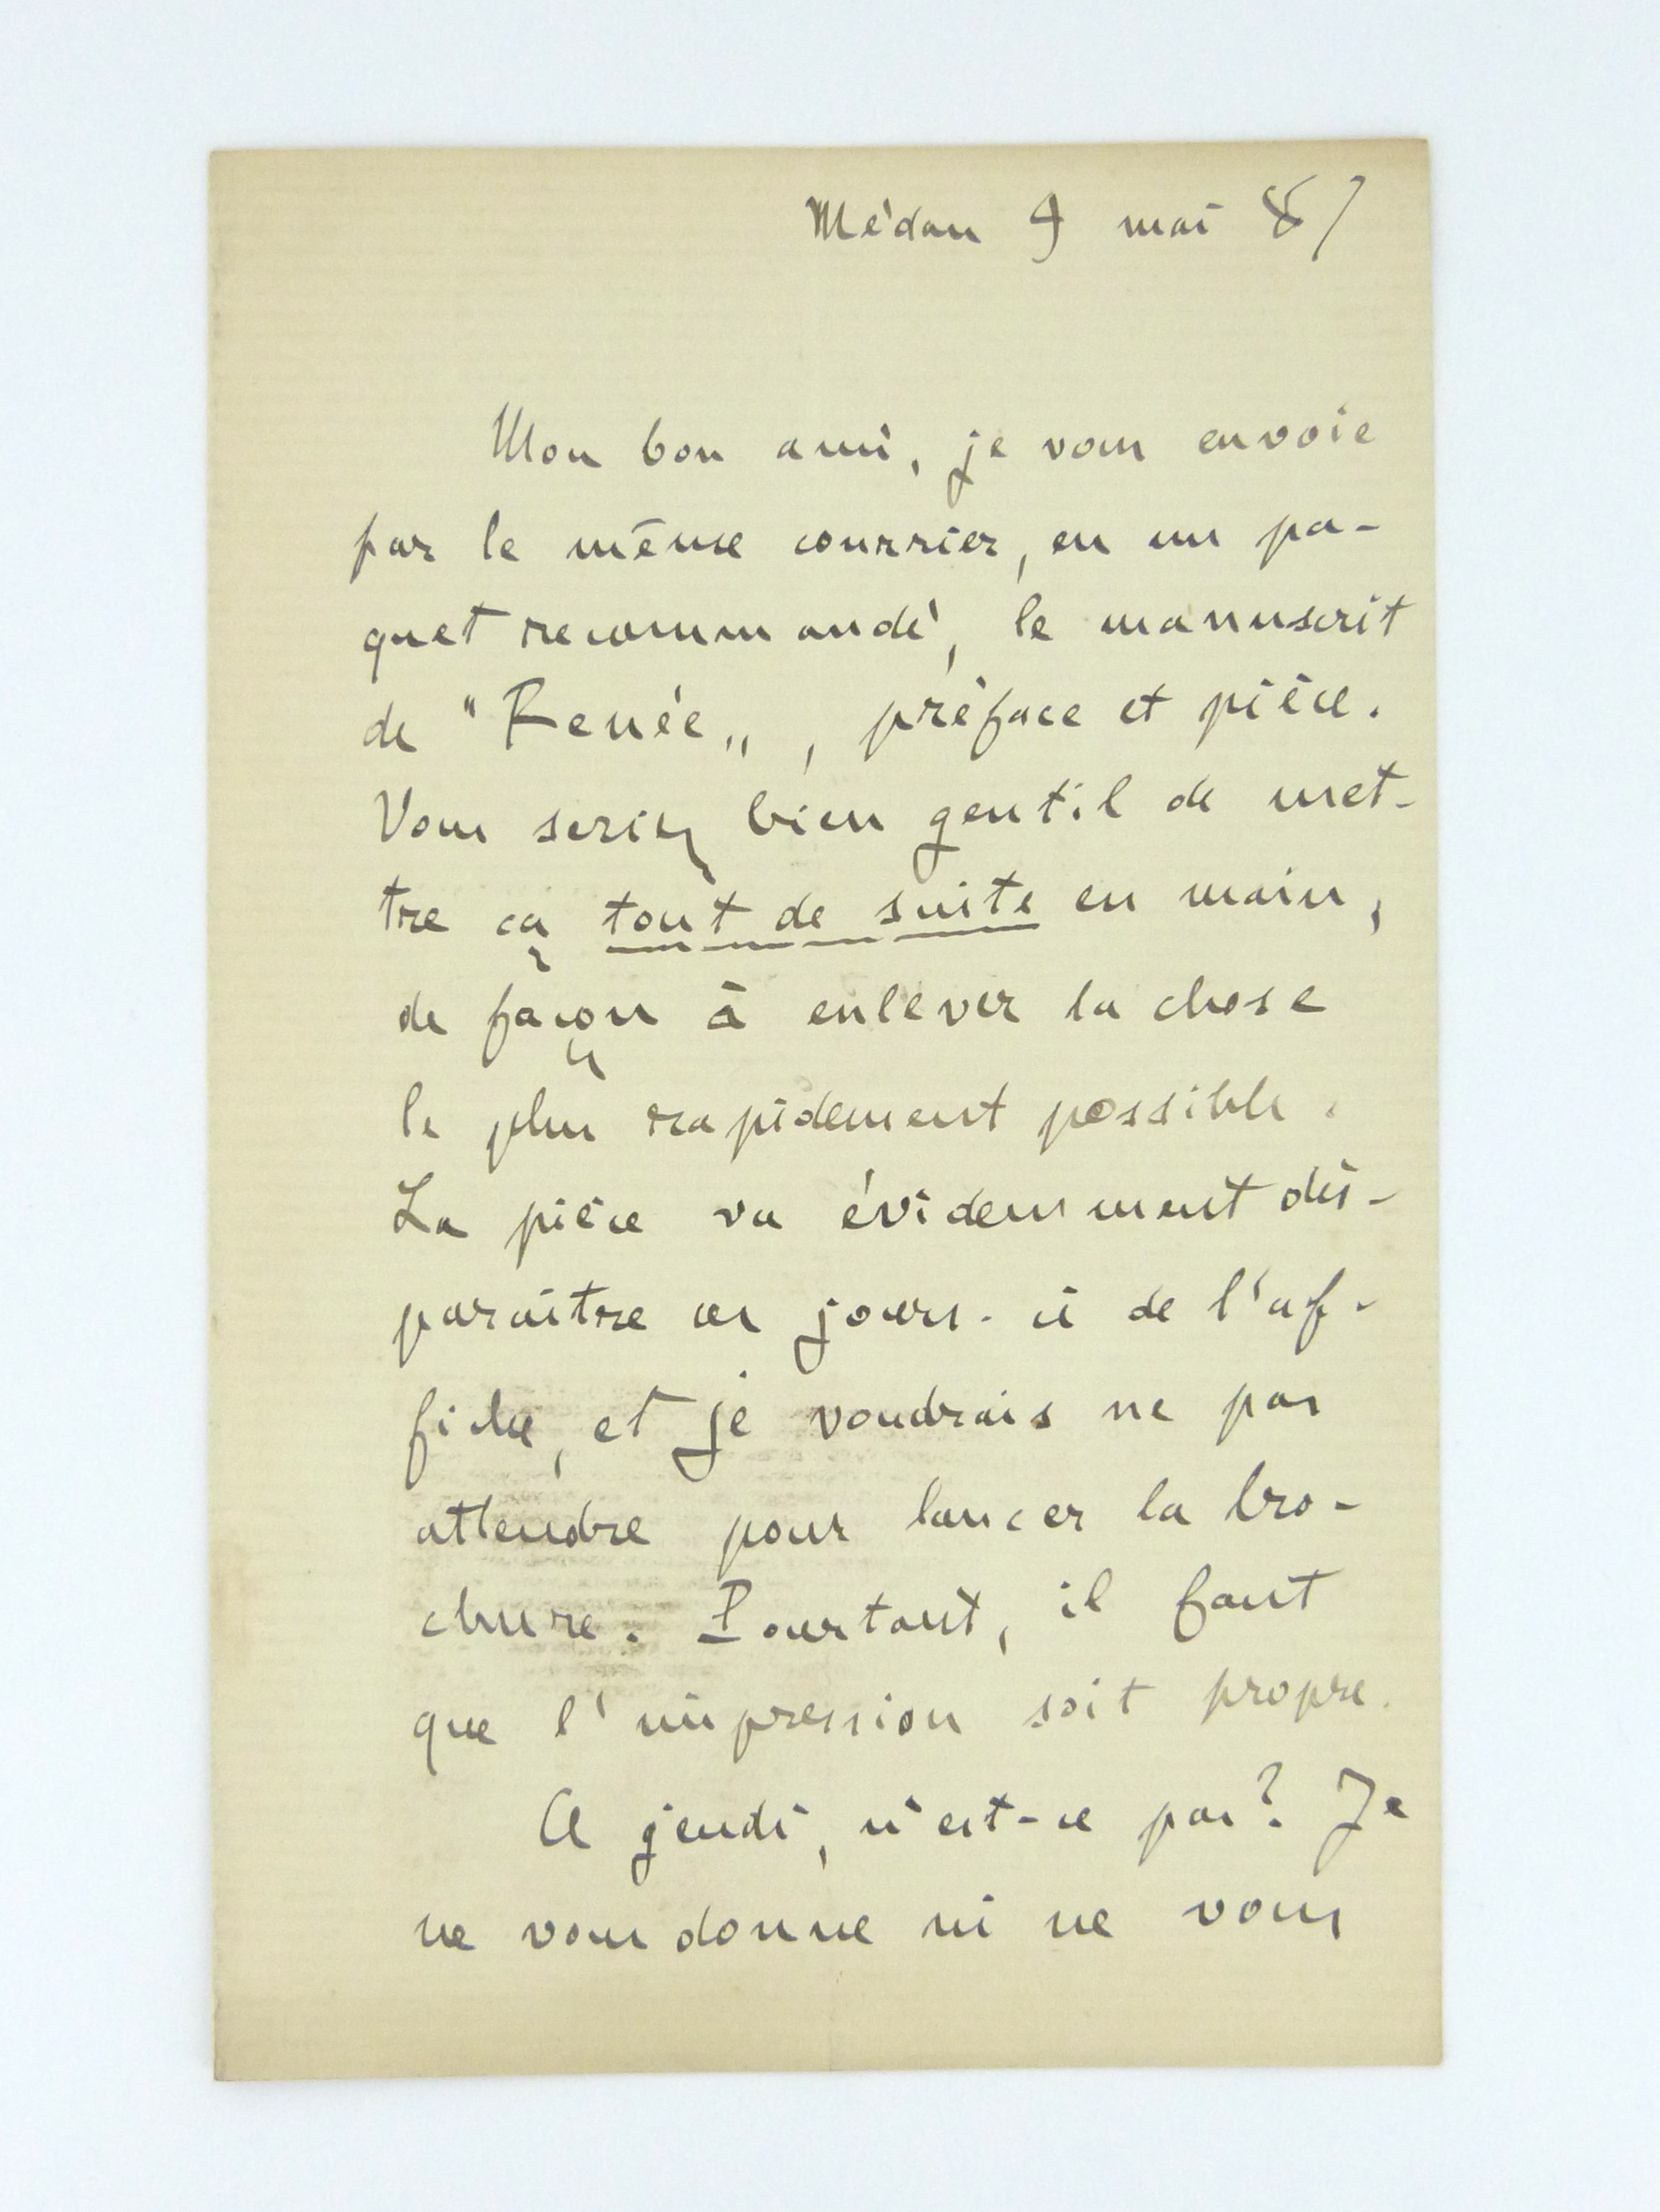 Médan 9 mai 87
Mon bon ami, je vous envoie
par le même courrier, en un pa-
quet recommandé, le manuscrit
de "Renée„, préface et pièce.
Vous seriez bien gentil de met-
tre ça tout de suite en main,
de façon à enlever la chose
le plus rapidement possible.
La pièce va évidemment dis-
paraître ces jours-ci de l'af-
fiche, et je voudrais ne pas
attendre pour lancer la bro-
chure. Pourtant, il faut
que l'impression soit propre.
A jeudi, n'est-ce pas? Je
ne vous donne ni ne vous